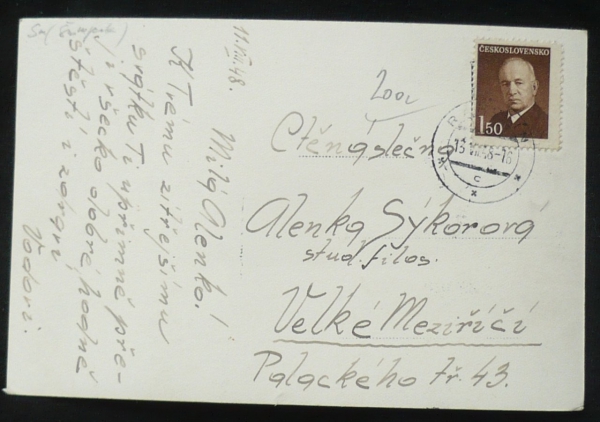 11.VIII.48.
Milá Alenko!
K Tvému zítřejšímu
svátku Ti upřímně pře-
ji všecko dobré, hodně
štěstí i zdraví
ČESKOSLOVENSKO
1.50
C
Ctěná slečna
Alenka Sýkorová
stud. filos.
Velké Meziříčí
Palackého tř. 43.